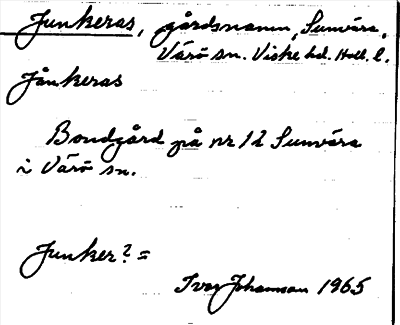 Junkeras, gårdsnamn, Sunvära,
Värö sn. Viske hd. Hall. l.
Jånkeras
Bondgård på nr 12 Sunvära
i Värö sn.
Junker? =
Ivar Johansson 1965